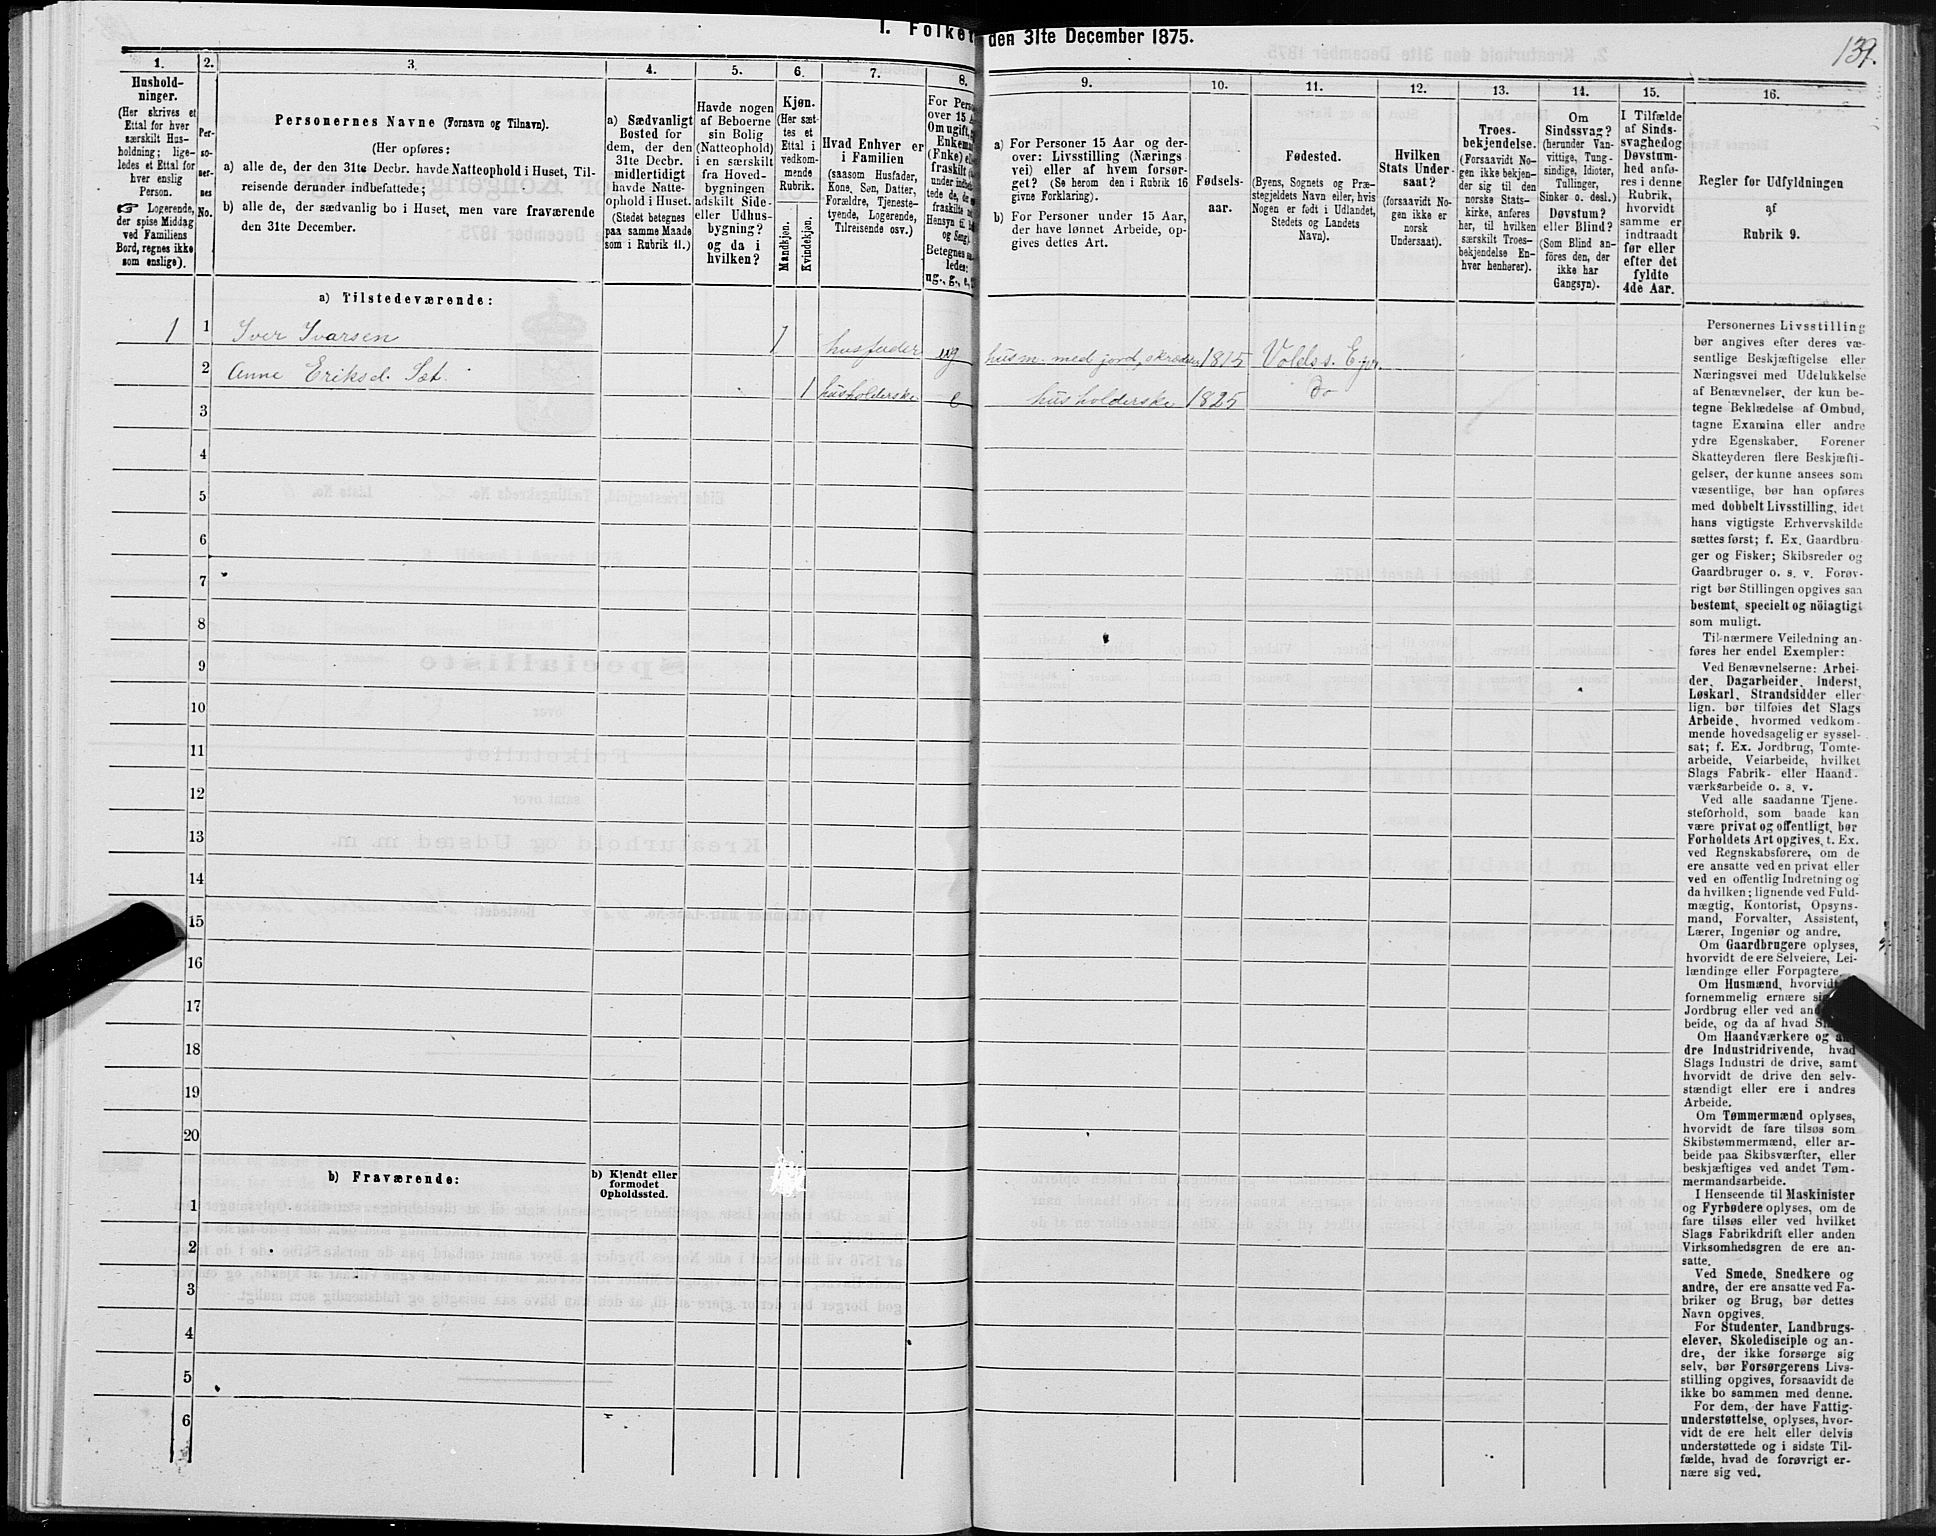 1. Folket
den 31te December 1875.
139.
1.
Hushold-
ninger.
(Her skrives et
Ettal for hver
særskilt Hus-
holdning; lige-
ledes et Ettal for
hver enslig
Person.
☞ Logerende,
der spise Middag
ved Familiens
Bord, regnes ikke
som enslige).
2.
Per-
so-
ner-
nes
No.
3.
Personernes Navne (Fornavn og Tilnavn).
(Her opføres:
a) alle de, der den 31te Decbr. havde Natteophold i Huset, Til-
reisende derunder indbefattede;
b) alle de, der sædvanlig bo i Huset, men vare fraværende
den 31te December.
4.
a) Sædvanligt
Bosted for
dem, der den
31te Decbr.
midlertidigt
havde Natte-
ophold i Huset.
(Stedet betegnes
paa samme Maade
som i Rubrik 11.)
5.
Havde nogen
af Beboerne
sin Bolig
(Natteophold)
i en særskilt
fra Hoved-
bygningen
adskilt Side-
eller Udhus-
bygning?
og da i
hvilken?
6.
Kjøn.
(Her sæt-
tes et
Ettal i
vedkom-
mende
Rubrik.
Mandkjøn.
Kvindekjøn.
7.
Hvad Enhver er
i Familien
(saasom Husfader,
Kone, Søn, Datter,
Forældre, Tjeneste-
tyende, Logerende,
Tilreisende osv.)
8.
For Perso
over 15 A
Om ugift,
Enkema
(Enke) el
under indbe
tede de, de
fraskilte
Hensyn til
og Seng).
Betegnes sa-
ledes:
ug., g., e.,
9.
a) For Personer 15 Aar og der-
over: Livsstilling (Nærings-
vei) eller af hvem forsør-
get? (Se herom den i Rubrik 16
givne Forklaring).
b) For Personer under 15 Aar,
der have lønnet Arbeide, op-
gives dettes Art.
10.
Fødsels-
aar.
11.
Fødested.
(Byens, Sognets og Præ-
stegjeldets Navn eller, hvis
Nogen er født i Udlandet,
Stedets og Landets
Navn).
12.
Hvilken
Stats Under-
saat?
(forsaavidt No-
gen ikke er
norsk
Undersaat).
13.
Troes-
bekjendelse.
(Forsaavidt No-
gen ikke bekjen-
der sig til den
norske Stats-
kirke, anføres
her, til hvilken
særskilt Troes-
bekjendelse En-
hver henhører).
14.
Om
Sindssvag?
(herunder Van-
vittige, Tung-
sindige, Idioter,
Tullinger,
Sinker o. desl.)
Døvstum?
eller Blind?
(Som Blind an-
føres den, der
ikke har
Gangsyn).
15.
I Tilfælde
af Sinds-
svaghed og
Døvstum-
hed anfø-
res i denne
Rubrik,
hvorvidt
samme er
indtraadt
før eller
efter det
fyldte
4de Aar.
16.
Regler for Udfyldningen
af
Rubrik 9.
a) Tilstedeværende:
1 1 Iver Ivarsen 1 husfader ug husm. med jord, skræder 1815 Volds s. E. pr.
2 Anne Eriksd. Sæt. 1 husholderske e husholderske 1825 Do
3
4
5
6
7
8
9
10
11
12
13
14
15
16
17
18
19
20
b) Fraværende:
b) Kjendt eller
formodet
Opholdssted.
1
2
3
4
5
6
Personernes Livsstilling
bør angives efter deres væ-
sentlige Beskjæftigelse eller
Næringsvei med Udelukkelse
af Benævnelser, der kun be-
tegne Beklædelse af Ombud,
tagne Examina eller andre
ydre Egenskaber. Forener
Skatteyderen flere Beskjæfti-
gelser, der kunne ansees som
væsentlige, bør han opføres
med dobbelt Livsstilling, idet
hans vigtigste Erhvervskilde
sættes først; f. Ex. Gaardbru-
ger og Fisker; Skibsreder og
Gaardbruger o. s. v. Forøv-
rigt bør Stillingen opgives saa
bestemt, specielt og nöiagtigt
som muligt.
Til nærmere Veiledning an-
føres her endel Exempler:
Ved Benævnelserne: Arbei-
der, Dagarbeider, Inderst,
Løskarl, Strandsidder eller
lign. bør tilføies det Slags
Arbeide, hvormed vedkom-
mende hovedsagelig er syssel-
sat; f. Ex. Jordbrug, Tomte-
arbeide, Veiarbeide, hvilket
Slags Fabrik- eller Haand-
værksarbeide o. s. v.
Ved alle saadanne Tjene-
steforhold, som baade kan
være privat og offentligt, bør
Forholdets Art opgives, t. Ex.
ved Regnskabsførere, om de
ere ansatte ved en privat eller
ved en offentlig Indretning og
da hvilken; lignende ved Fuld-
mægtig, Kontorist, Opsyns-
mand, Forvalter, Assistent,
Lærer, Ingeniør og andre.
Om Gaardbrugere oplyses,
hvorvidt de ere Selveiere, Lei-
lændinge eller Forpagtere.
Om Husmænd, hvorvidt
fornemmelig ernære si
Jordbrug eller ved an
beide, og da af hvad S
Om Haandværkere og an-
dre Industridrivende, hvad
Slags Industri de drive, samt
hvorvidt de drive den selv-
stændigt eller ere i andres
Arbeide.
Om Tømmermænd oplyses,
hvorvidt de fare tilsøs som
Skibstømmermænd, eller ar-
beide paa Skibsværfter, eller
beskjæftiges ved andet Tøm-
mermandsarbeide.
I Henseende til Maskinister
og Fyrbødere oplyses, om de
fare tilsøs eller ved hvilket
Slags Fabrikdrift eller anden
Virksomhedsgren de ere an-
satte.
Ved Smede, Snedkere og
andre, der ere ansatte ved Fa-
briker og Brug, bør dettes
Navn opgives.
For Studenter, Landbrugs-
elever, Skoledisciple og an-
dre, der ikke forsørge sig
selv, bør Forsørgerens Livs-
stilling opgives, forsaavidt de
ikke bo sammen med denne.
For dem, der have Fattig-
understøttelse, oplyses, hvor-
vidt de ere helt eller delvis
understøttede og i sidste Til-
fælde, hvad de forøvrigt er-
nære sig ved.